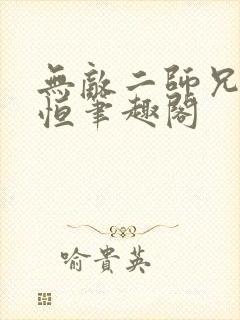 無敵二師兄
恒筆趣閣
喻貴英